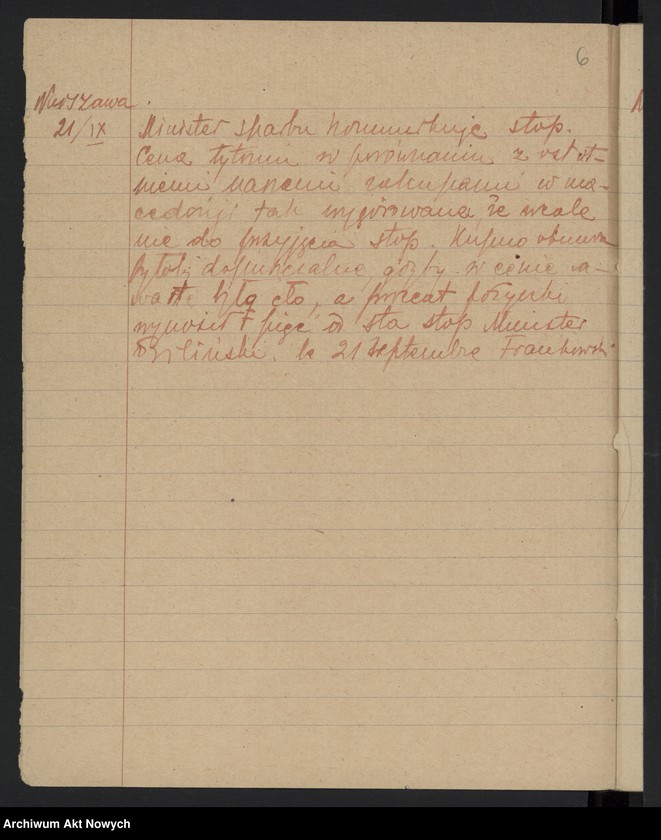 6
Warszawa.
21/IX
Minister skarbu komunikuje stop.
Cena tytoniu w porównaniu z ostat-
niemi naszemi zakupami w ma-
cedonji tak wygórowana że wcale
nie do przyjęcia stop. Kupno
byłoby gdyby w cenie za-
warte było cło, a procent pożyczki
wynosił pięć od sta stop Minister
Biliński. le 21 Septembre Frankowski
Archiwum Akt Nowych